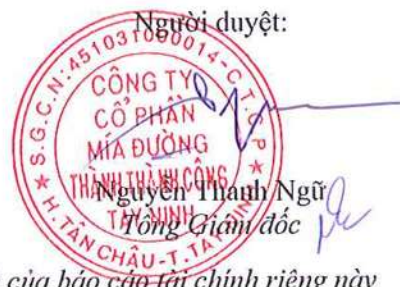 Người duyệt:
S.G.C.N:451031000014-C.T.C.P
CÔNG TY
CỔ PHẦN
MÍA ĐƯỜNG
THÀNH THÀNH CÔNG
TÂY NINH
H.TÂN CHÂU-T.TÂY NINH
Nguyễn Thanh Ngữ
Tổng Giám đốc
của báo cáo tài chính riêng này